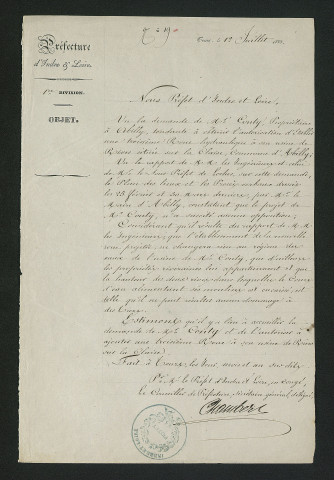 Préfecture
d'Indre & Loire.
1re DIVISION.
OBJET.
Tours, le 1er Juillet
Nous Préfet d'Indre et Loire,
Vu la demande de Mr. Conty, Propriétaire
à Abilly, tendante à obtenir l'autorisation d'établir
une troisième Roue hydraulique à son usine de
située sur la Claise, Commune d'Abilly;
Vu le rapport de M.M. les Ingénieurs et celui
de Mr. le Sous Préfet de Loches, sur cette demande,
le Plan des lieux et les Procès verbaux dressés
les 25 février et par Mr. le
Maire d'Abilly, constatant que le projet de
Mr. Conty, n'a suscité aucune opposition;
Considérant qu'il résulte du rapport de M.M.
les Ingénieurs, que l'établissement de la nouvelle
roue projetée ne changera rien au régime des
eaux de l'usine de Mr. Conty, que d'ailleurs
les propriétés riveraines lui appartiennent et que
la hauteur des deux rives dans lesquelles le Cours
d'eau alimentant son moulin est encaissé est
telle qu'il ne peut résulter aucun dommage à
Estimons qu'il y a lieu d'accueillir la
demande de Mr. Conty et de l'autoriser à
ajouter une troisième Roue à son usine de
sur la Claise.
Fait à Tours, les jour, mois et an susdits.
Pr. Mr. le Préfet d'Indre et Loire, en congé,
Le Conseiller de Préfecture, Secrétaire général délégué,